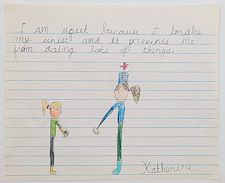 I am upset because I brake
my wrist and it prevents me
from doing lots of things.
Katherine